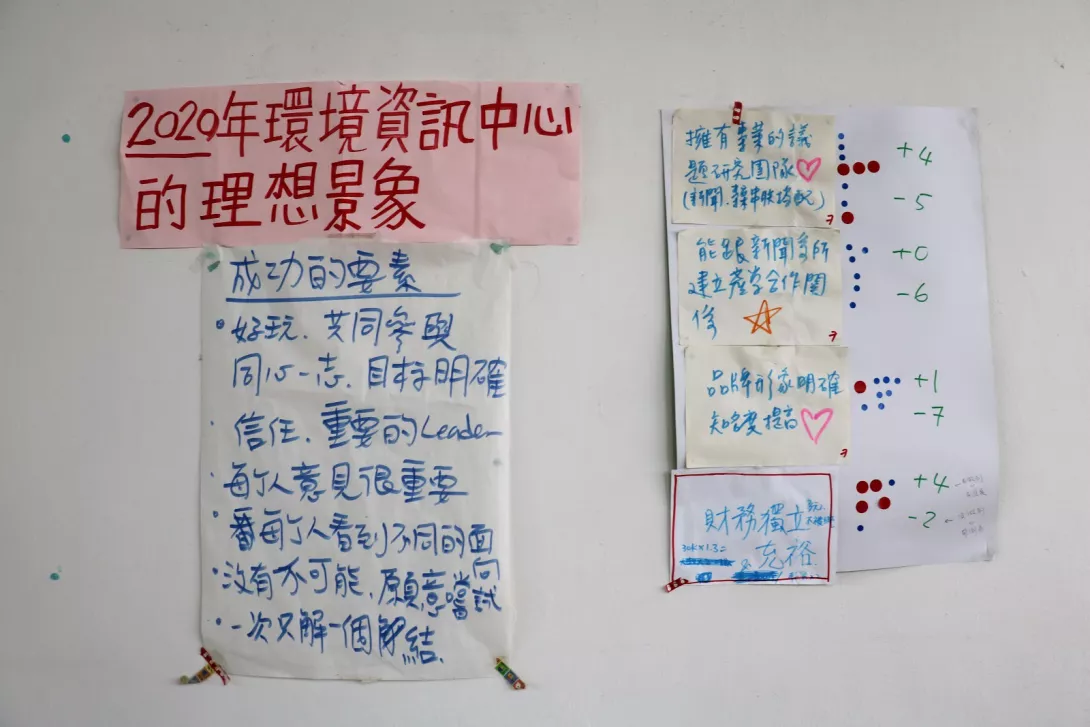 2020年環境資訊中心
的理想景象
成功的要素
•好玩、共同參與
同心一志、目標明確
•信任、重要的Leader
•每个人意見很重要
•看每个人看到不同的面向
•沒有不可能、願意嚐試
•一次只解一個結
擁有專業的議
題研究團隊
(新聞、
能跟新聞系所
建立產學合作關
係
品牌形象明確
知名度提高
財務獨立
& 充裕
30k×1.3=
+4
-5
+0
-6
+1
-7
+4
-2